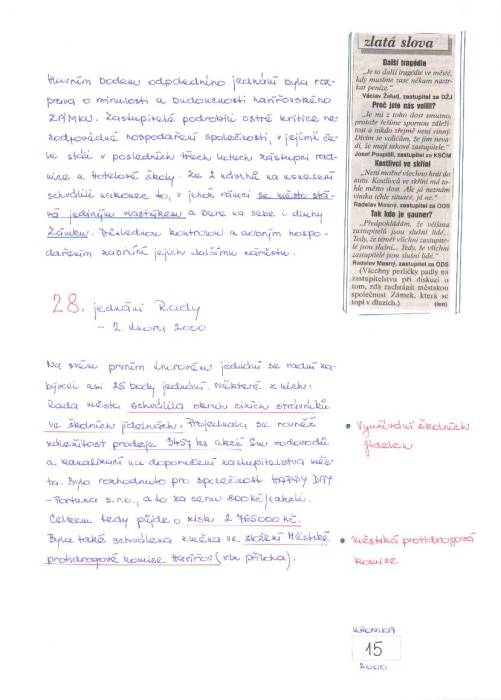 Hlavním bodem odpoledního jednání byla roz-
prava o minulosti a budoucnosti havířovského
ZÁMKU. Zastupitelé podrobili ostré kritice ne-
zodpovědné hospodaření společnosti, v jejímž če-
le stáli v posledních třech letech zástupci rad-
nice a Hotelové školy. Ze 2 návrhů na usnesení
schválili nakonec to, v jehož rámci se město stá-
vá jediným vlastníkem a bere na sebe i dluhy
Zámku. Důslednou kontrolou a dobrým hospo-
dařením zabrání jejich dalšímu nárůstu.
zlatá slova
Další tragédie
„Je to další tragédie ve městě,
kdy musíme zase někam nastr-
kat peníze."
Václav Žalud, zastupitel za DŽJ
Proč jste nás volili?
„Je mi z toho dost smutno,
protože řešíme spornou záleži-
tost a nikdo zřejmě není vinný.
Divím se voličům, že jim nevo-
dí, že mají takové zastupitele."
Josef Pospíšil, zastupitel za KSČM
Kostlivci ve skříni
„Není možné všechno hrát do
autu. Kostlivců ve skříni má to-
hle město dost. Ale já neznám
viníka téhle situace, já ne."
Radoslav Masný, zastupitel za ODS
Tak kdo je gauner?
„Předpokládám, že většina
zastupitelů jsou slušní lidé.
Tedy, že téměř všichni zastupi-
telé jsou slušní... Tedy, že všichni
zastupitelé jsou slušní lidé."
Radoslav Masný, zastupitel za ODS
(Všechny perličky padly na
zastupitelstvu při diskuzi o
tom, zda zachránit městskou
společnost Zámek, která se
topí v dluzích.) (len)
28. jednání Rady
– 2. února 2000
Na svém prvním únorovém jednání se radní za-
bývali asi 25 body jednání. Některé z nich:
Rada města schválila okruh cizích strávníků
ve školních jídelnách. Projednala se rovněž
záležitost prodeje 3457 ks akcií Sm vodovodů
a kanalizací na doporučení zastupitelstva měs-
ta. Bylo rozhodnuto pro společnost HAPPY DAY
– Fortuna s.r.o., a to za cenu 800 Kč/1 akcii.
Celkem tedy půjde o zisk 2 765000 Kč.
Byla také schválena změna ve složení Městské
protidrogové komise Havířov (viz příloha).
• Využívání školních
jídelen
• Městská protidrogová
komise
KRONIKA
15
2000